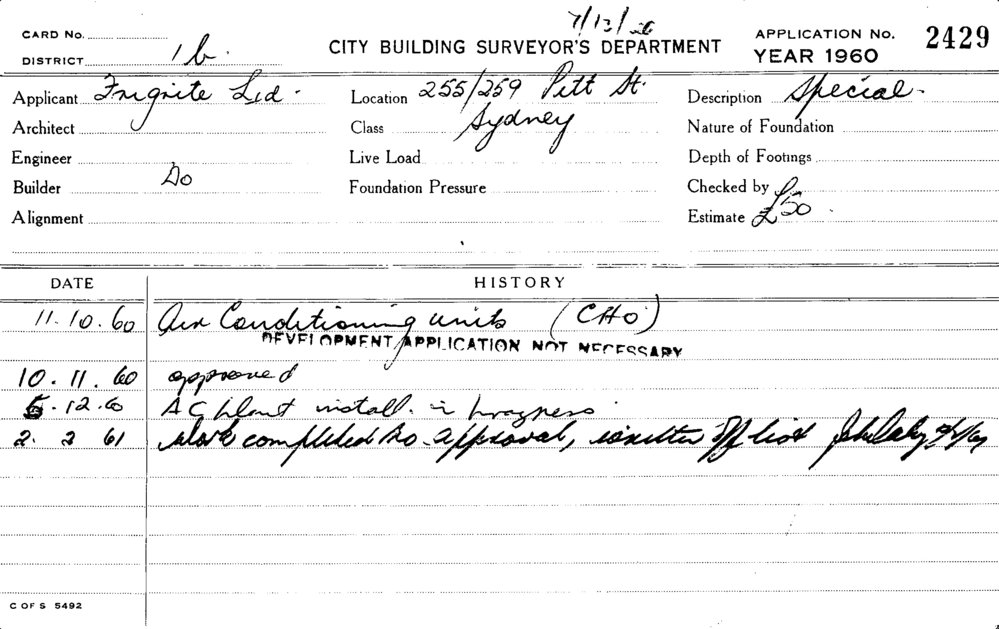 7/12/60
CARD No. CITY BUILDING SURVEYOR'S DEPARTMENT APPLICATION No. 2429
DISTRICT 1b. YEAR 1960
Applicant Frigrite Ltd. Location 255/259 Pitt St. Description Special.
Architect Class Sydney Nature of Foundation
Engineer Live Load Depth of Footings
Builder Do Foundation Pressure Checked by
Alignment Estimate £50.
DATE HISTORY
11.10.60 Air Conditioning units (CHO)
DEVELOPMENT APPLICATION NOT NECESSARY
10.11.60 approved
5.12.60 A C plant install. in progress
2.2 61 Work completed to approval, written off list
C OF S 5492